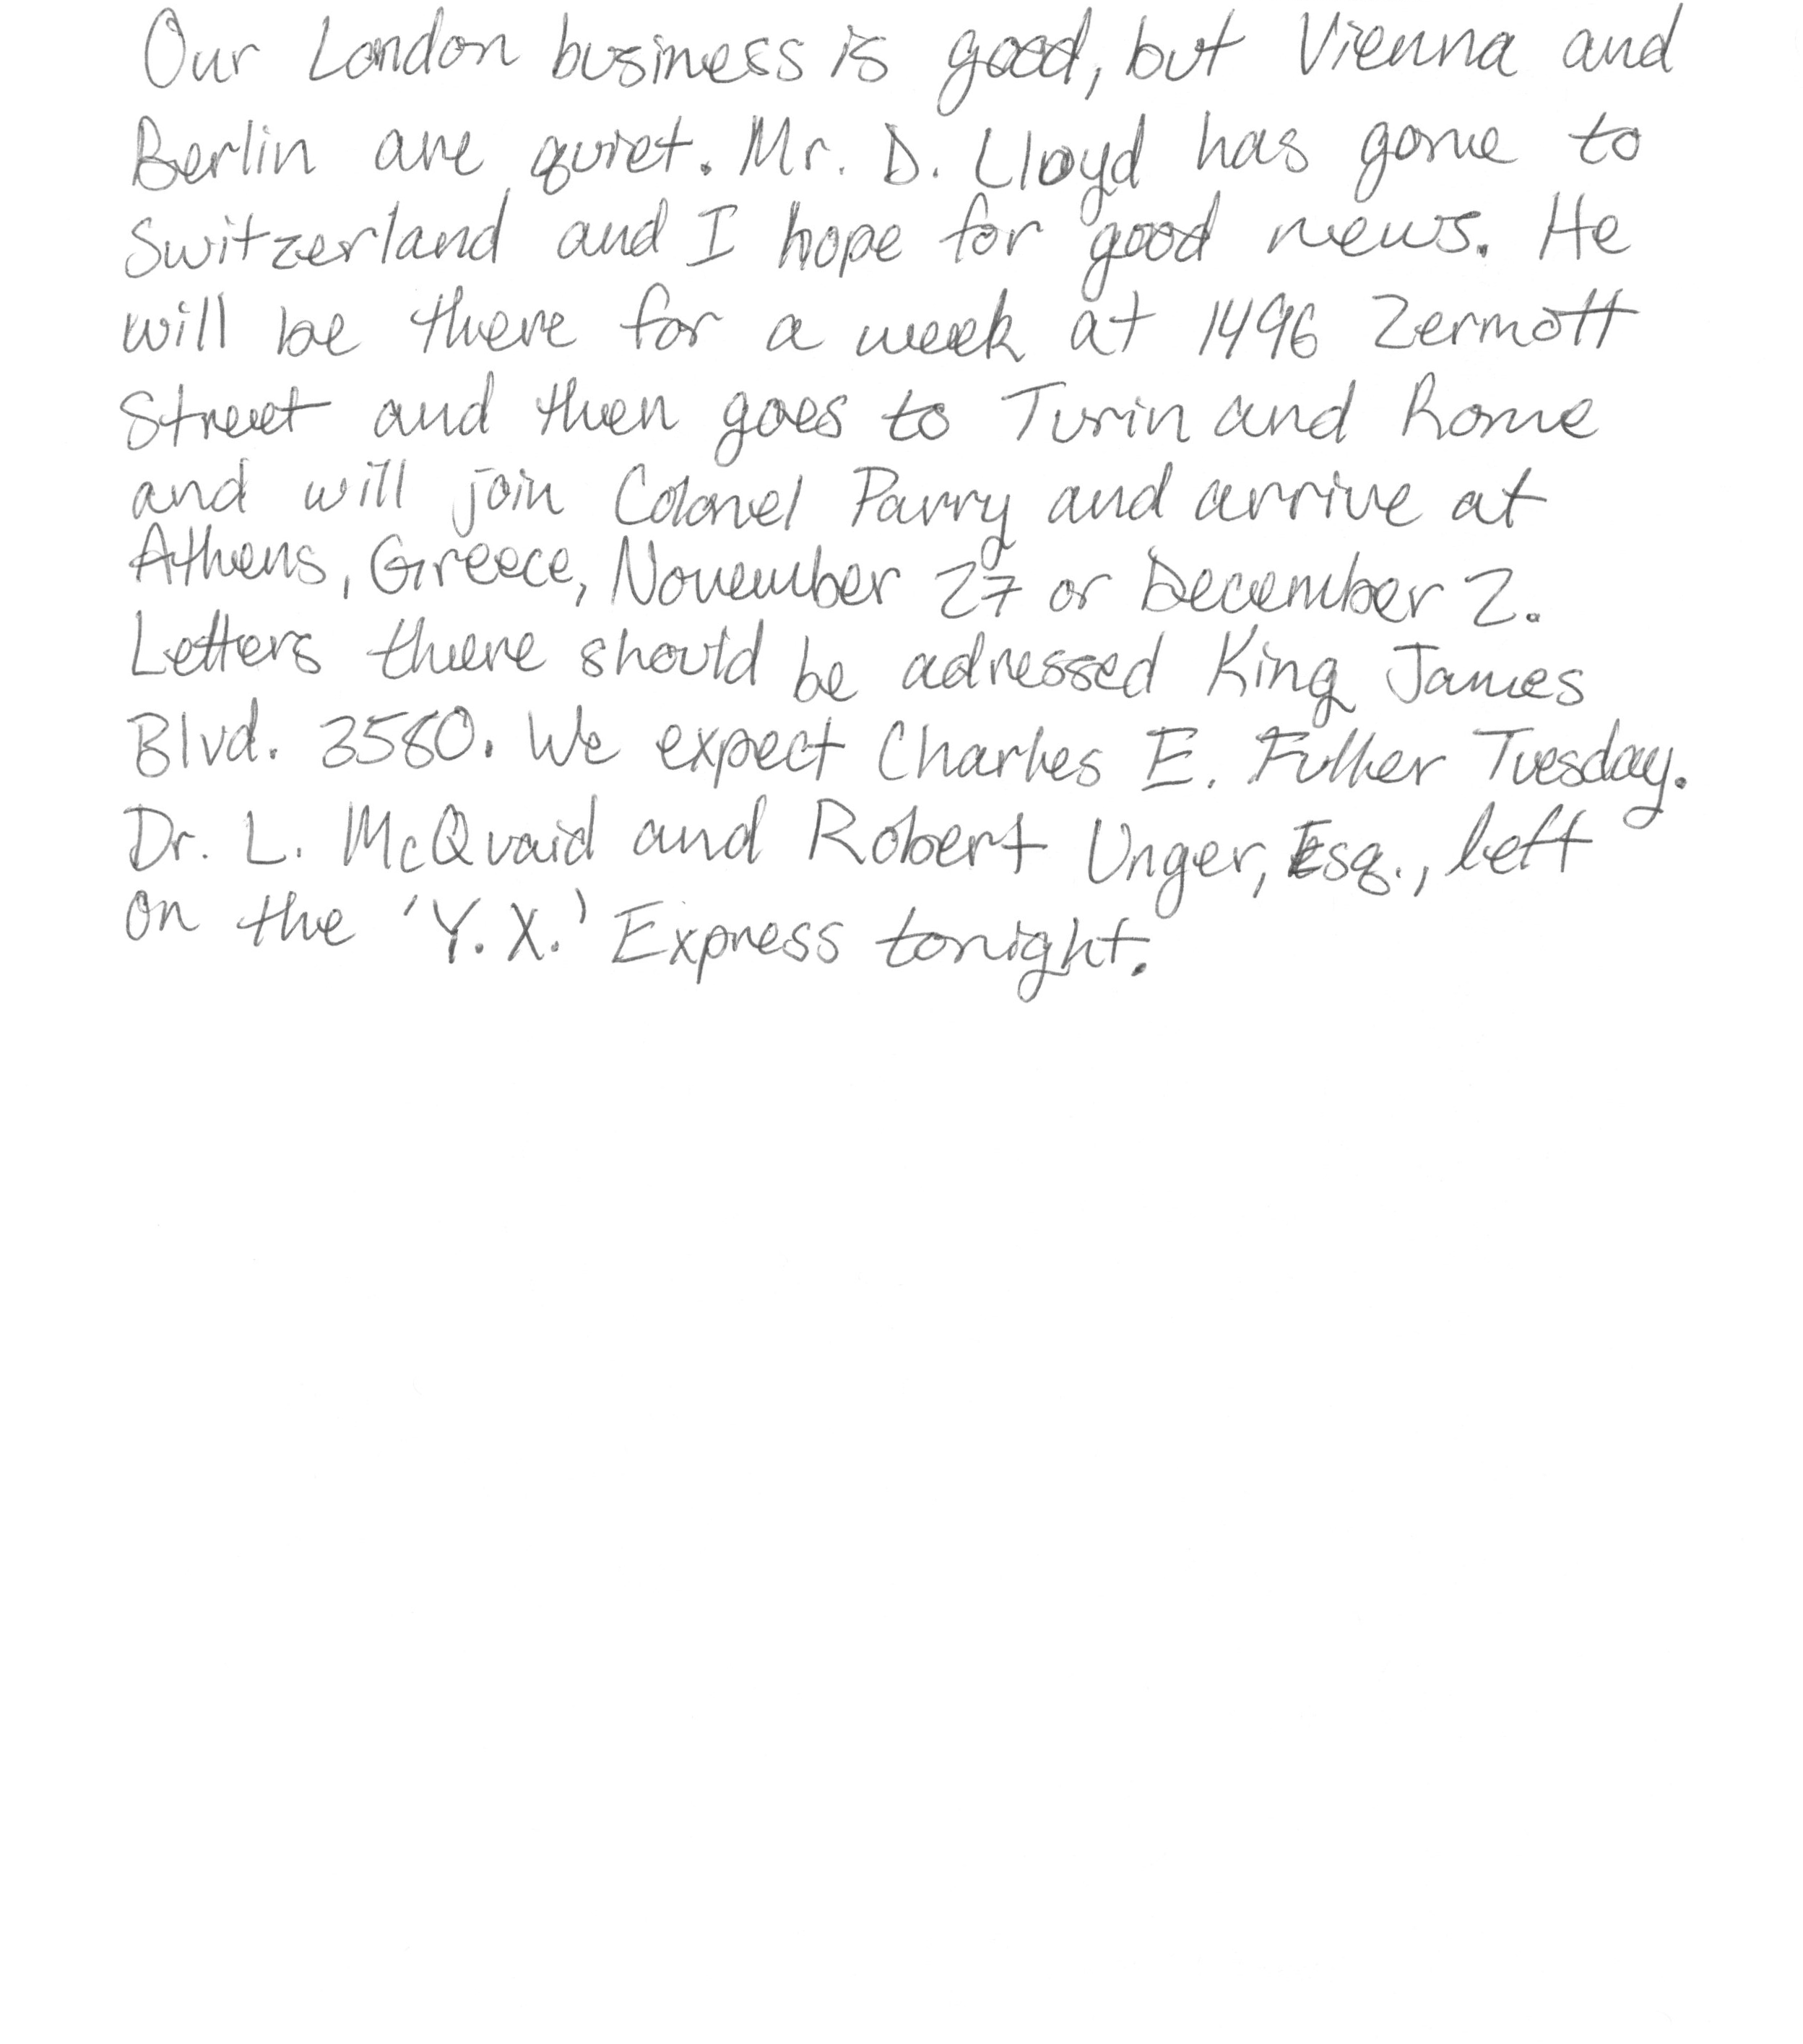 Our London business is good, but Vienna and
Berlin are quiet. Mr. D. Lloyd has gone to
Switzerland and I hope for good news. He
will be there for a week at 1496 Zermott
Street and then goes to Turin and Rome
and will join Colonel Parry and arrive at
Athens, Greece, November 27 or December 2.
Letters there should be adressed King James
Blvd. 3580. We expect Charles E. Fuller Tuesday.
Dr. L. McQuaid and Robert Unger, Esq., left
on the 'Y.X.' Express tonight.